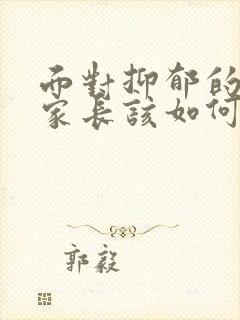 而對抑郁的
家長該如何
郭毅